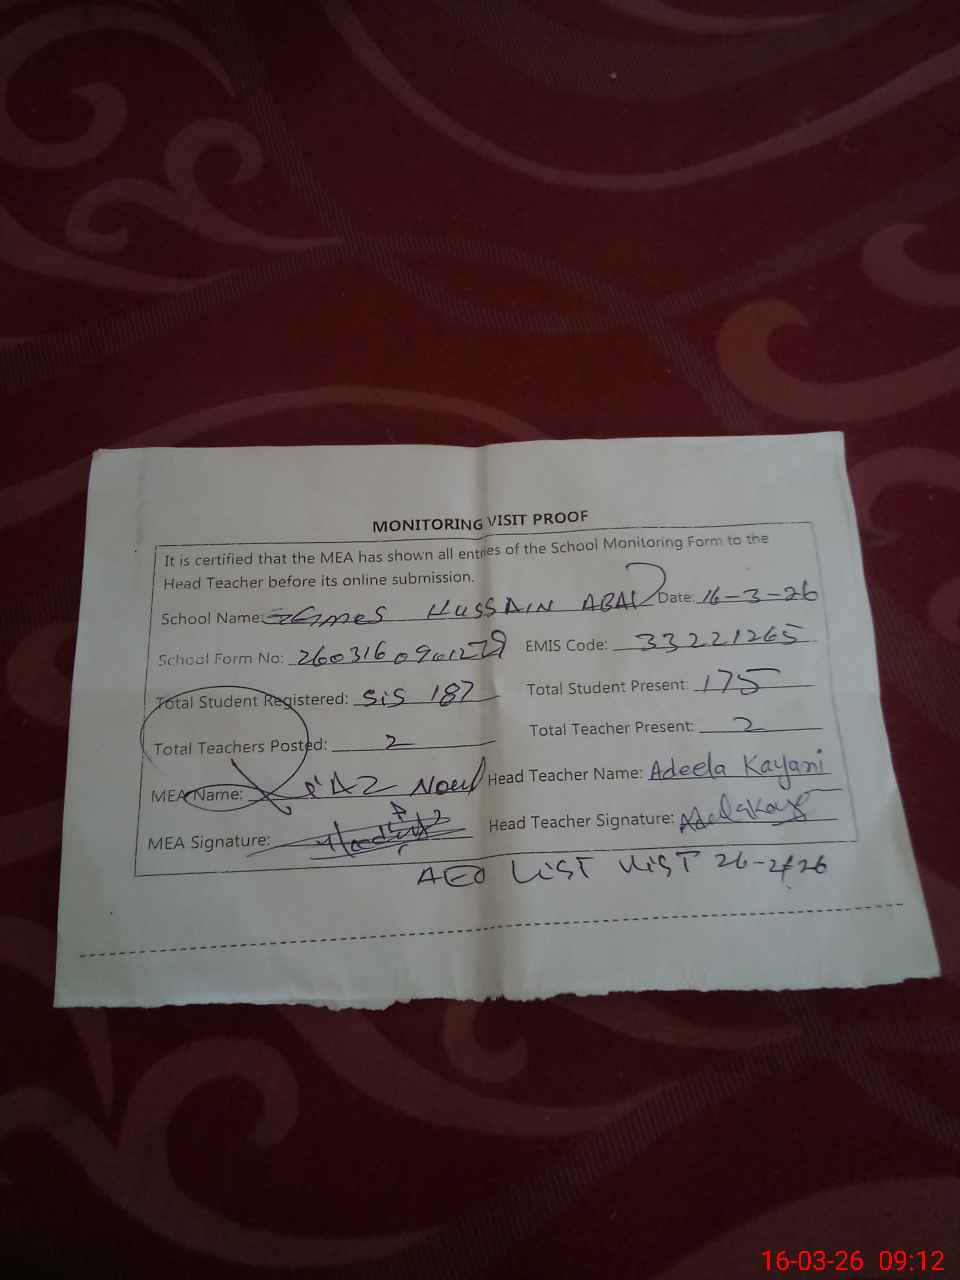 MONITORING VISIT PROOF
It is certified that the MEA has shown all entries of the School Monitoring Form to the
Head Teacher before its online submission.
School Name: GMPS HUSSAIN ABAD Date: 16-3-26
School Form No: EMIS Code: 33221265
Total Student Registered: SiS 187 Total Student Present: 175
Total Teachers Posted: 2 Total Teacher Present: 2
MEA Name: Head Teacher Name: Adeela Kayani
MEA Signature: Head Teacher Signature:
AEO LiST ViST 26-2-26
16-03-26 09:12